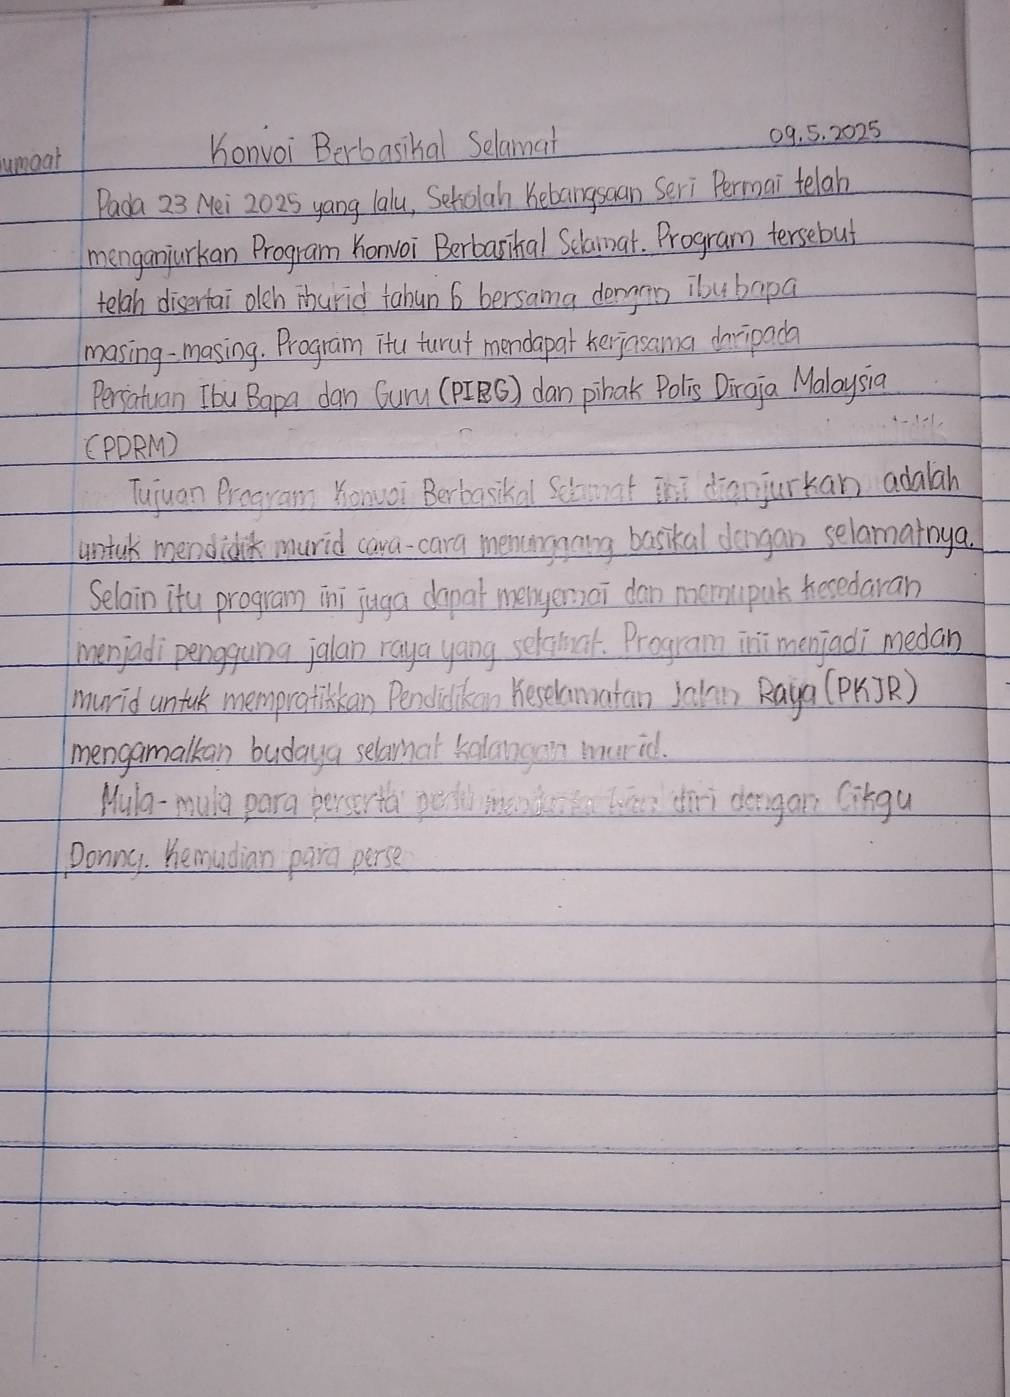 umaat
Konvoi Berbasikal Selamat
09.5.2025
Pada 23 Mei 2025 yang lalu, Sekolah Kebangsaan Seri Permai telah
menganjurkan Program Konvoi Berbasikal Selamat. Program tersebut
telah disertai oleh murid tahun 6 bersama dengan ibu bapa
masing-masing. Program itu turut mendapat kerjasama daripada
Persatuan Ibu Bapa dan Guru (PIBG) dan pihak Polis Diraja Malaysia
(PDRM)
Tujuan Program Konvoi Berbasikal Selamat ini dianjurkan adalah
untuk mendidik murid cara-cara menunggang basikal dengan selamatnya.
Selain itu program ini juga dapat menyemai dan memupuk kesedaran
menjadi pengguna jalan raya yang selamat. Program ini menjadi medan
murid untuk mempratikkan Pendidikan Keselamatan Jalan Raya (PKJR)
mengamalkan budaya selamat kalangan murid.
Mula-mula para perserta perlu diri dengan Cikgu
Donny. Kemudian para perse